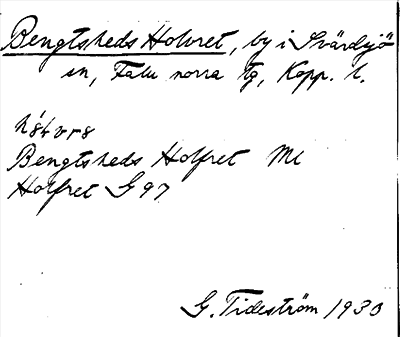 Bengtsheds Holvret, by i Svärdsjö
sn, Falu norra tg, Kopp. l.
Bengtsheds Holfret Ml
Holfret G 97
G. Tideström 1930